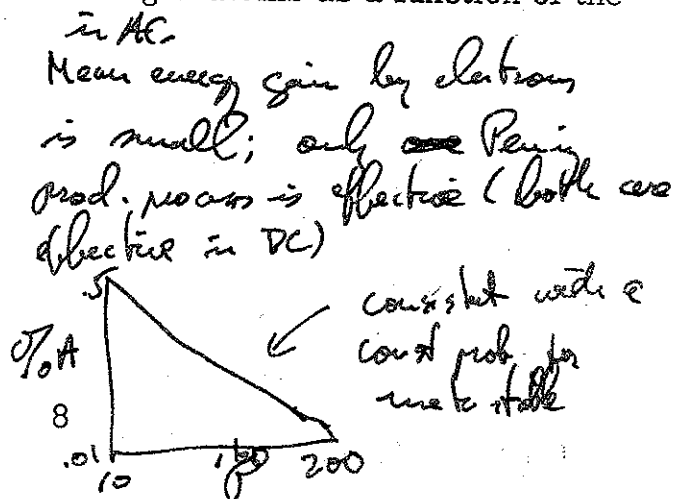 as a function of the
in AC.
Mean energy gain by electrons
is small; only Penning
prod. process is effective (both are
effective in DC)
.5
consistent with a
const prob. for
metastable
% A
8
.01
10
P
200